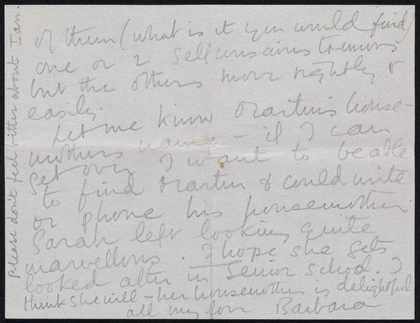 of them (what is it you would find)
one or 2
but the others more rightly &
easily.
Let me know Martins house-
mothers name – if I can
get over I want to be able
to find Martin & could write
or phone his housemother.
Sarah left looking quite
marvellous. I hope she gets
looked after in Senior School. I
think she will – her housemother is delightful
all my love Barbara
Please don't feel bitter about Ian.